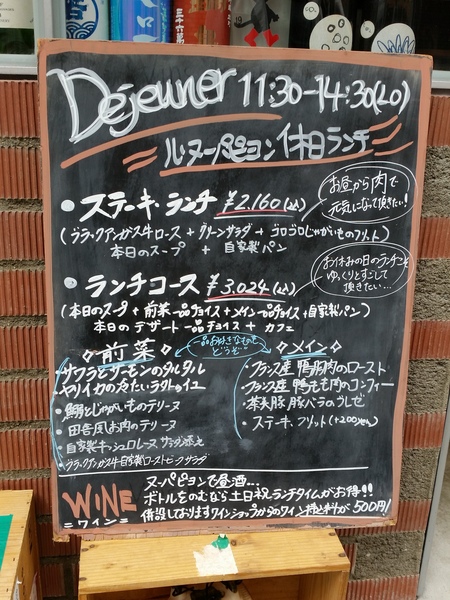 Déjeuner 11:30-14:30(LO)
ル・ヌーパピヨン 休日ランチ
・ステーキ・ランチ ¥2,160(込)
お昼から肉で
元気になって頂きたい!
(ブラックアンガス牛ロース + グリーンサラダ + ゴロゴロじゃがいものフリット)
本日のスープ + 自家製パン
・ランチコース ¥3,024(込)
お休みの日のランチこそ
ゆっくりとすごして
頂きたい...
(本日のスープ + 前菜一品チョイス + メイン一品チョイス + 自家製パン)
本日のデザート一品チョイス + カフェ
◇前菜◇
一品お好きなものを
どうぞ
◇メイン◇
・サワラとサーモンのタルタル
ヤリイカの冷たいラタトゥイユ
・鰯とじゃがいものテリーヌ
・田舎風お肉のテリーヌ
・自家製キッシュロレーヌ サラダ添え
・ブラックアンガス牛自家製ローストビーフサラダ
・フランス産 鴨胸肉のロースト
・フランス産 鴨もも肉のコンフィー
・茶美豚 豚バラのブレゼ
・ステーキ・フリット(+200yen)
WINE
=ワイン=
ヌーパピヨンで昼酒...
ボトルをのむなら土日祝ランチタイムがお得!!
併設しておりますワインショップからのワイン持込料が500円!